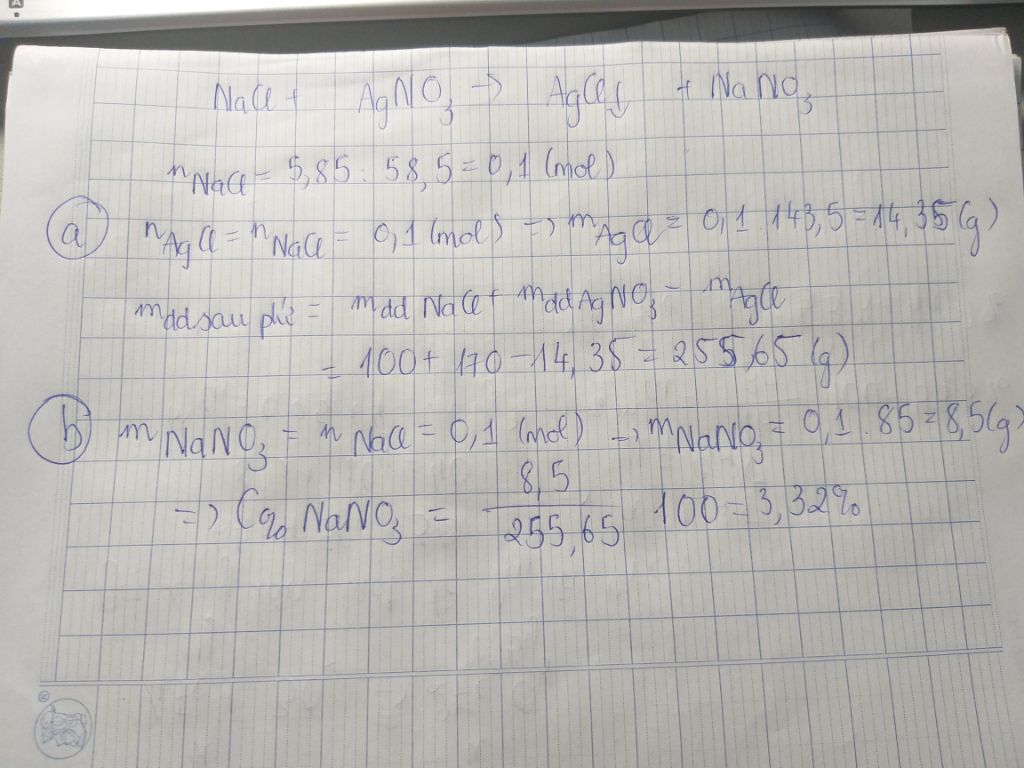 NaCl + AgNO₃ → AgCl↓ + NaNO₃
nNaCl = 5,85 : 58,5 = 0,1 (mol)
a nAgCl = nNaCl = 0,1 (mol) => mAgCl = 0,1 . 143,5 = 14,35 (g)
mdd sau phứ = mdd NaCl + mdd AgNO₃ - mAgCl
= 100 + 170 - 14,35 = 255,65 (g)
b mNaNO₃ = nNaCl = 0,1 (mol) => mNaNO₃ = 0,1 . 85 = 8,5 (g)
=> C% NaNO₃ = 8,5 / 255,65 100 = 3,32%